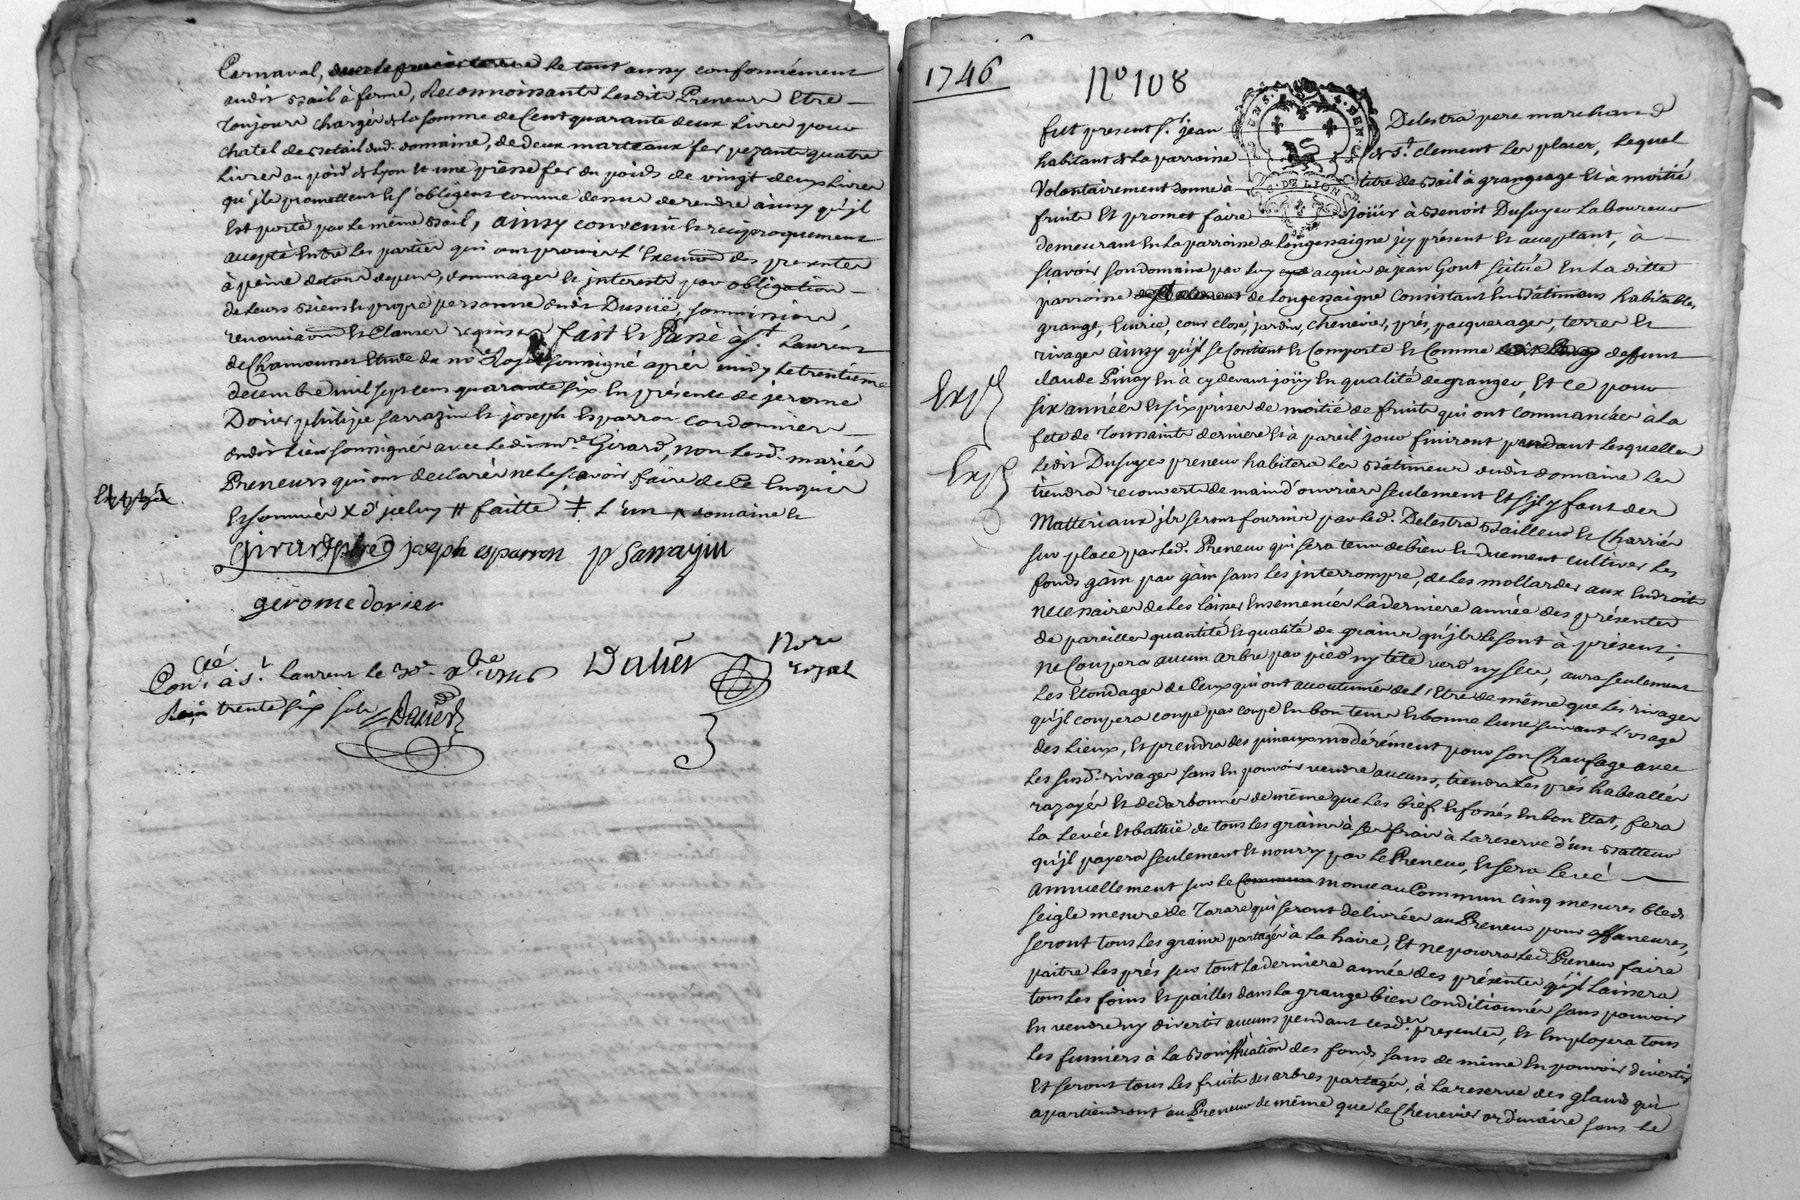 Carnaval, le tout ainsy conformément
audit Bail à ferme, Reconnoissants lesdits Preneurs Etre
toujours chargés de la somme de Cent quarante deux Livres pour
chatel de Betail dud. domaine, de deux marteaux fer pezants quatre
Livres au poid de Lyon et une pièsse fer du poids de vingt deux Livres
qu'jls promettent et s'obligent comme dessus de rendre ainsy qu'jl
est porté par le même Bail, ainsy convenu et reciproquement
accepté Entre les parties qui ont promis L'Exécution des presentes
à peine de tous depens, dommages et jnterets par obligation
de leurs Biens propre personne dudit Dusuié, soumissions
renonciations et Clauses requises fait et Passé à St. Laurent
de Chamousset Etude du nore Royal soussigné après midy le trentieme
decembre mil sept cens quarante six En présence de jerome
Dorier philipe sarrazin et joseph Esparron cordonniers
dudit Lieu soussignés avec ledit mre Girard, non lesd. mariés
Preneurs qui ont declarés ne le sçavoir faire de Ce Enquis
et sommés X d'jceluy # faitte ‡ L'un ^ domaine et
Expédié
Girard ptre joseph esparron p Sarrazin
gerome dorier
Con.lé à St. Laurent le 30e Xbre 1746
Reçu trente six sols Dalier
Dalier Nore royal
1746
No 108
GEN. DE LION
fut present Sr. jean Delestra pere marchand
habitant de la parroisse de St. Clement les places, Lequel
Volontairement donne à titre de Bail à grangeage et à moitié
fruits et promet faire jouir à Benoit Dusuyer Laboureur
demeurant En la parroisse de Longessaigne jcy présent et acceptant, à
sçavoir son domaine par luy acquis de jean Gout scitué En la ditte
parroisse de Longessaigne Consistant En Bâtimens habitables
grange, Ecurie, cour close, jardin, chenevier, prés, pacquerages, terres et
rivages ainsy qu'jl se Contient et Comporte et Comme deffunt
claude Pinay En à cy devant joüy En qualité de granger, Et ce pour
six années et six prises de moitié de fruits qui ont Commancées à la
fete de Toussaints derniere et à pareil jour finiront pendant lesquelles
Ledit Dusuyer preneur habitera les Bâtimens dudit domaine les
tiendra recouverts de main d'ouvrier seulement et s'jl y faut des
Matteriaux jls seront fournis par led. Delestra Bailleur et Charriés
sur place par led. Preneur qui sera tenu de bien et Duement cultiver les
fonds gain par gain sans les jnterrompre, de les mollarder aux Endroits
necessaires de les laisser Ensemencés la derniere année des présentes
de pareilles quantité et qualité de grains qu'jls le sont à présent,
ne Coupera aucun arbre par pied ny tête verd ny sec, aura seulement
les Etondages de Ceux qui ont accoutumés de l'Etre de même que les rivages
qu'jl coupera coupe par coupe En bon tems et bonne lune suivant l'usage
des Lieux, et prendra des pinaux modérément pour son Chaufage avec
les susd. rivages sans En pouvoir vendre aucuns, tiendra les prés habeallés
razoyés et dedarbonnés de même que les bief et fossés En bon Etat, fera
la Levée et battuë de tous les grains à ses frais à la reserve d'un Batteur
qu'jl payera seulement et nourry par le Preneur, et sera Levé
annuellement sur le monceau Commun cinq mesures bled
seigle mesure de Tarare qui seront delivrées au Preneur pour affaneures,
seront tous les grains partagés à la haire, et ne pourra led. Preneur faire
paitre les prés sur tout la derniere année des présentes qu'jl laissera
tous les foins et pailles dans la grange bien Conditionnés sans pouvoir
En vendre ny divertir aucuns pendant lesd. presentes, et Employera tous
les fumiers à la Boniffication des fonds sans de même En pouvoir divertir
et seront tous les fruits des arbres partagés, à la reserve des glands qui
apartiendront au Preneur de même que le Chenevier ordinaire sans le
Exp.
Exp.